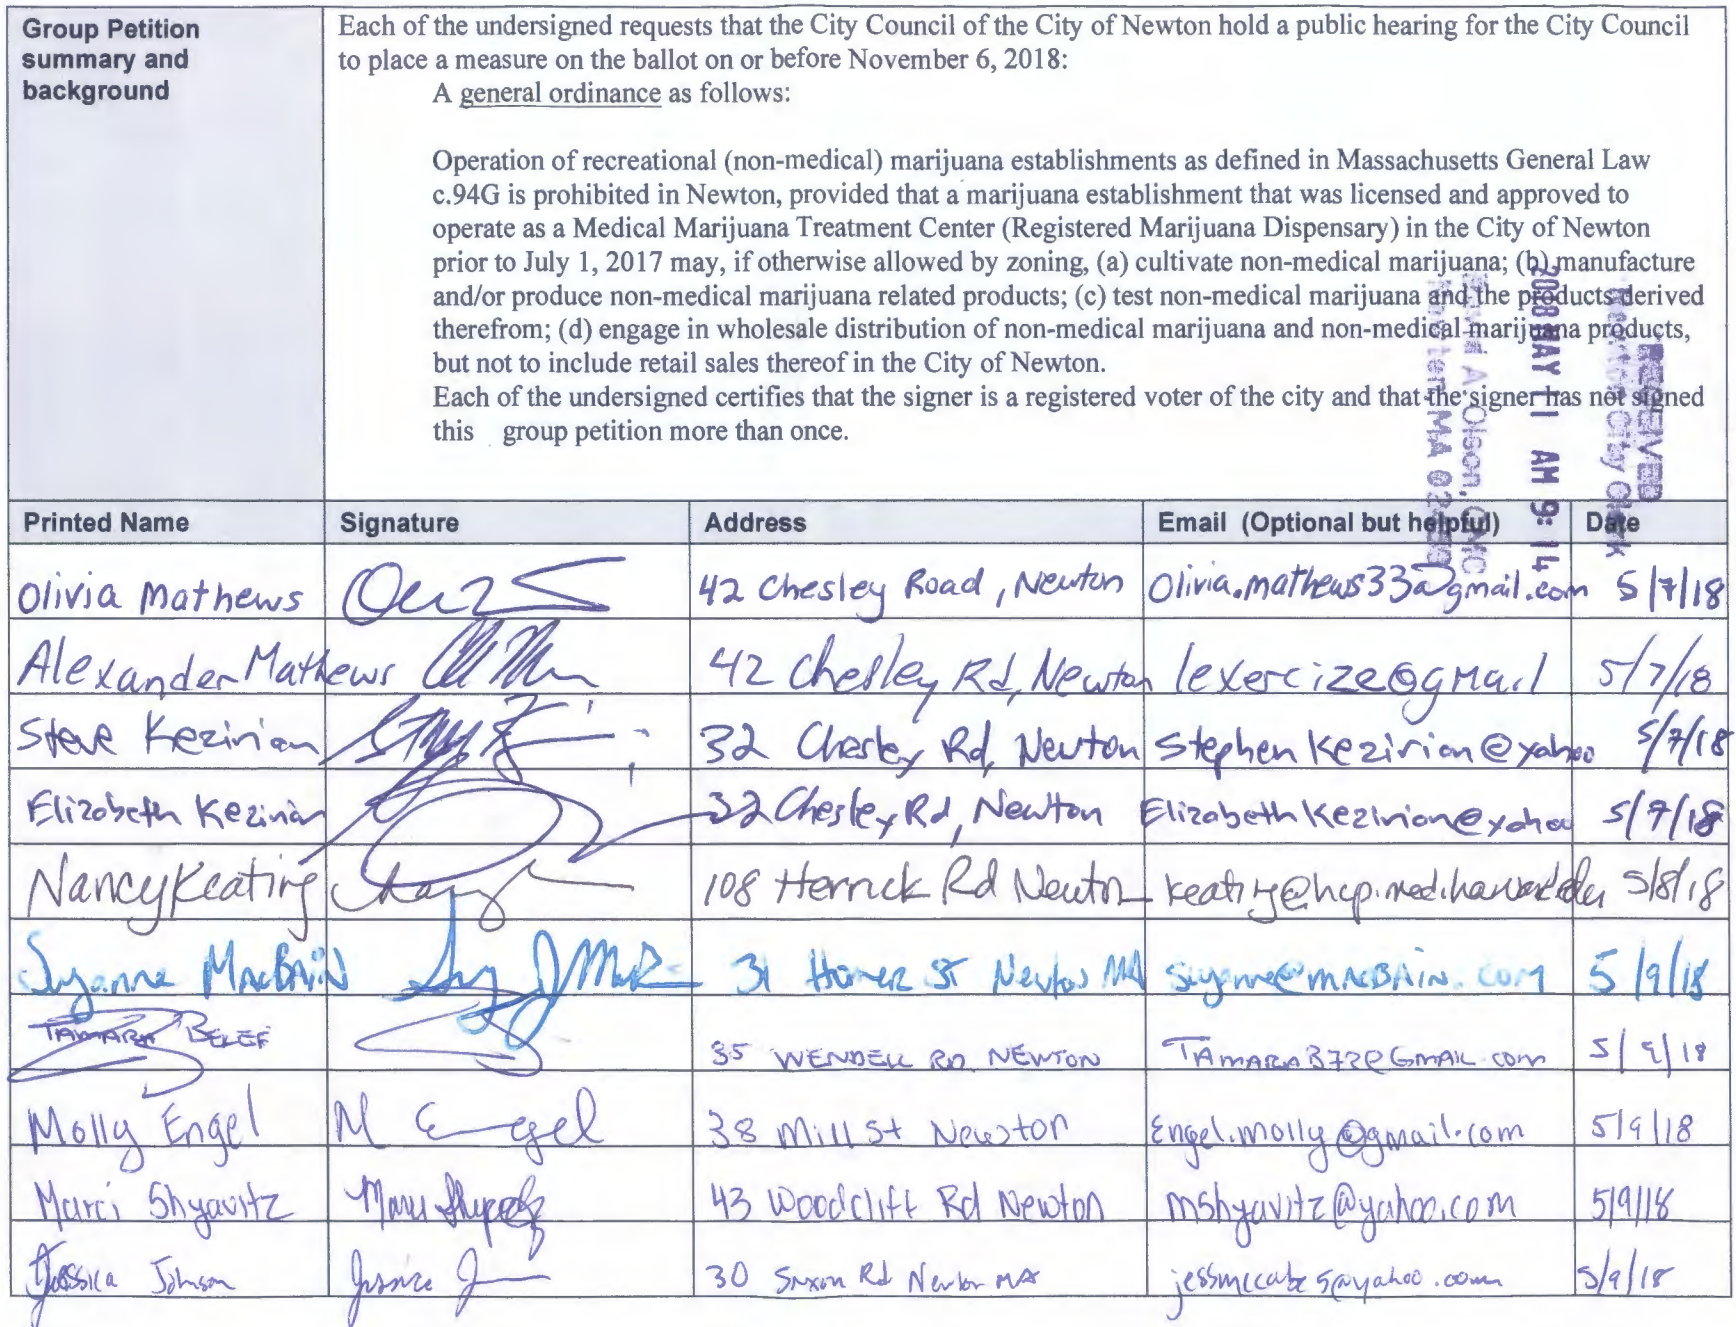 Group Petition summary and background
Each of the undersigned requests that the City Council of the City of Newton hold a public hearing for the City Council
to place a measure on the ballot on or before November 6, 2018:
A general ordinance as follows:
Operation of recreational (non-medical) marijuana establishments as defined in Massachusetts General Law
c.94G is prohibited in Newton, provided that a marijuana establishment that was licensed and approved to
operate as a Medical Marijuana Treatment Center (Registered Marijuana Dispensary) in the City of Newton
prior to July 1, 2017 may, if otherwise allowed by zoning, (a) cultivate non-medical marijuana; (b) manufacture
and/or produce non-medical marijuana related products; (c) test non-medical marijuana and the products derived
therefrom; (d) engage in wholesale distribution of non-medical marijuana and non-medical marijuana products,
but not to include retail sales thereof in the City of Newton.
Each of the undersigned certifies that the signer is a registered voter of the city and that the signer has not signed
this group petition more than once.
RECEIVED
Newton City Clerk
2018 MAY 11 AM 9:14
A. Olson, CMC
Newton, MA
Printed Name Signature Address Email (Optional but helpful) Date
Olivia Mathews 42 Chesley Road, Newton Olivia.mathews33@gmail.com 5/7/18
Alexander Mathews 42 Chesley Rd, Newton lexercize@gmail 5/7/18
Steve Kezirian 32 Chesley Rd, Newton Stephen Kezirian@yahoo 5/7/18
Elizabeth Kezirian 32 Chesley Rd, Newton Elizabeth Kezirian@yahoo 5/7/18
Nancy Keating 108 Herrick Rd Newton keating@hcp.med.harvard.edu 5/8/18
Suzanne MacBAiN 31 Homer St Newton MA suzanne@MACBAiN.com 5/9/18
TAMARA BELEF 35 WENDELL RD NEWTON TAMARAB72@GMAIL.com 5/9/18
Molly Engel M Engel 38 Mill st Newton Engel.molly@gmail.com 5/9/18
Marci Shyavitz 43 Woodcliff Rd Newton mshyavitz@yahoo.com 5/9/18
Jessica Johnson 30 Saxon Rd Newton MA jessmccabe5@yahoo.com 5/9/18